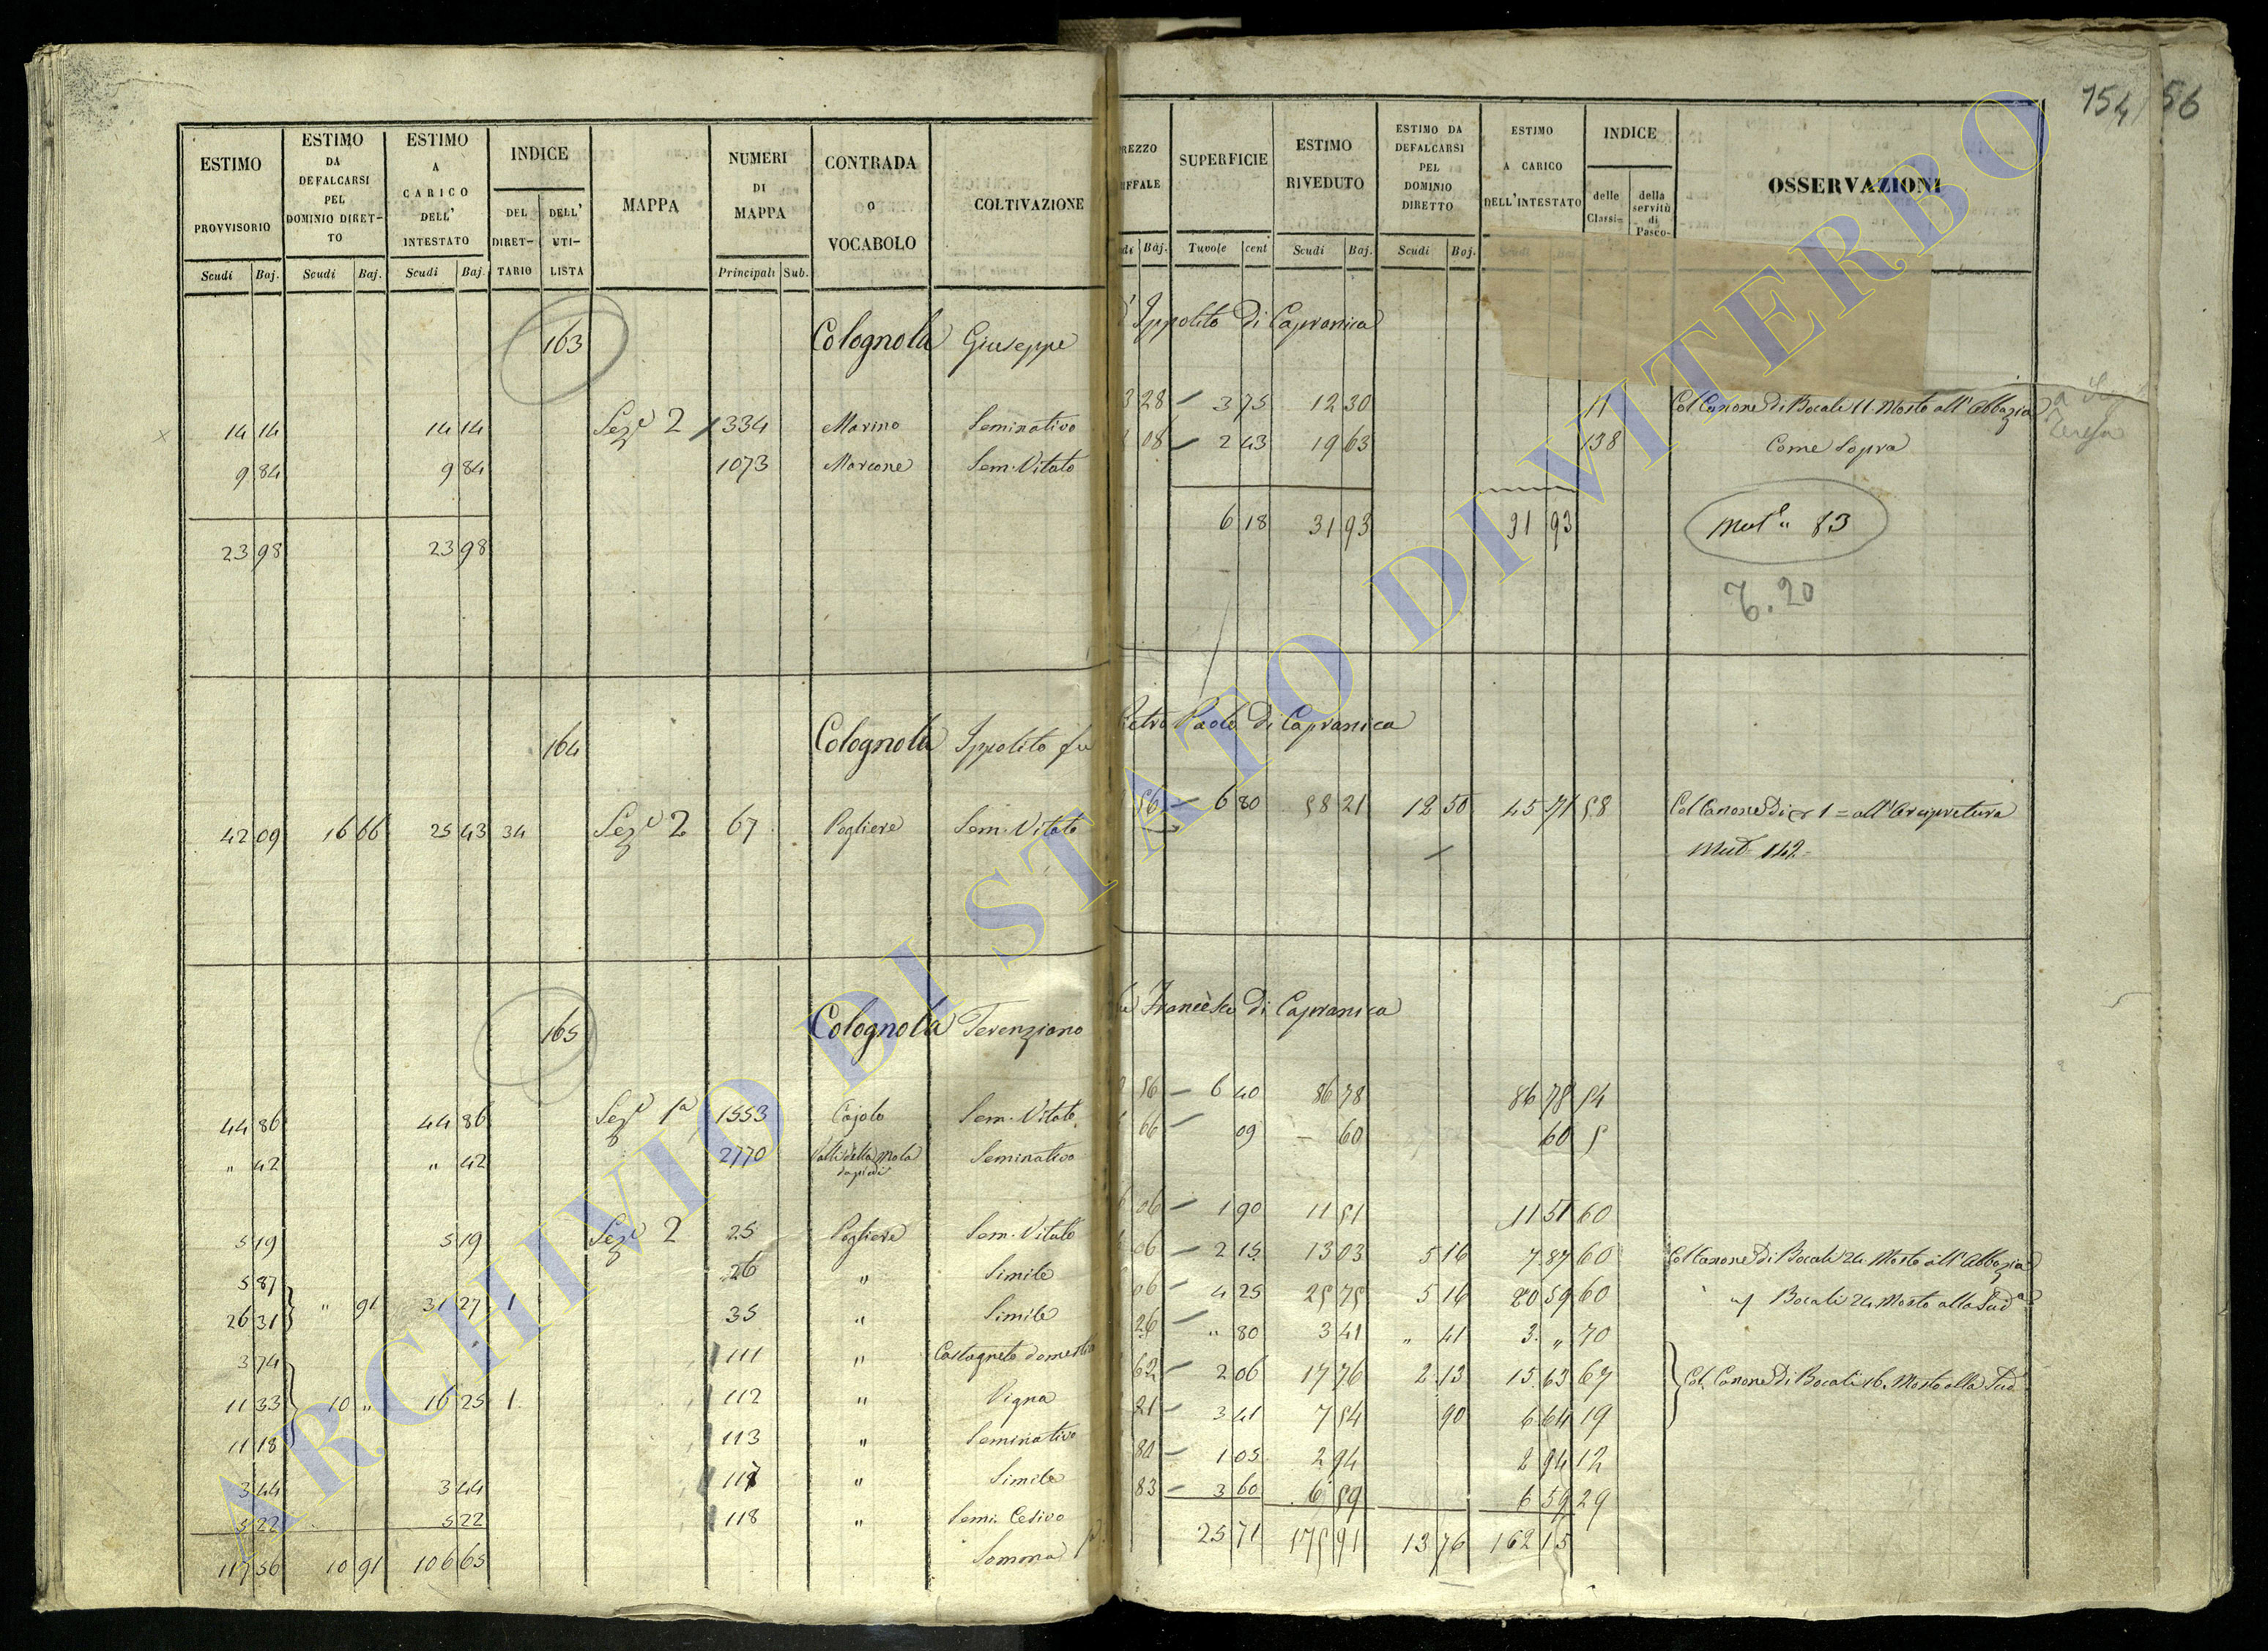 154/56
ESTIMO PROVVISORIO | ESTIMO DA DEFALCARSI PEL DOMINIO DIRET-TO | ESTIMO A CARICO DELL' INTESTATO | INDICE DEL DIRET-TARIO | DELL' UTI-LISTA | MAPPA | NUMERI DI MAPPA | CONTRADA o VOCABOLO | COLTIVAZIONE
Scudi Baj. | Scudi Baj. | Scudi Baj. | Principali Sub.
163 Colognola Giuseppe
14 14 | 14 14 | Seze 2 | 334 | Marino | Seminativo
9 84 | 9 84 | 1073 | Marcone | Sem. Vitato
23 98 | 23 98
164 Colognola Ippolito fu
42 09 | 16 66 | 25 43 | 34 | Seze 2 | 67 | Pogliere | Sem. Vitato
165 Colognola Terenziano
44 86 | 44 86 | Seze 1a | 1553 | Cajolo | Sem. Vitato
" 42 | " 42 | 2770 | Valle della Mola | Seminativo
5 19 | 5 19 | Seze 2 | 25 | Pogliere | Sem. Vitato
5 87 | 26 | " | Simile
26 31 | " 91 | 31 27 | 1 | 35 | " | Simile
3 74 | 111 | " | Castagneto domestico
11 33 | 10 " | 16 25 | 1 | 112 | " | Vigna
11 18 | 113 | " | Seminativo
3 44 | 3 44 | 117 | " | Simile
5 22 | 5 22 | 118 | " | Semi. Cesivo
117 56 | 10 91 | 106 65 | Somma
REZZO IFFALE | SUPERFICIE | ESTIMO RIVEDUTO | ESTIMO DA DEFALCARSI PEL DOMINIO DIRETTO | ESTIMO A CARICO DELL'INTESTATO | INDICE delle Classi= | della servitù di Pasco- | OSSERVAZIONI
di Baj. | Tavole cent | Scudi Baj. | Scudi Baj.
Ippolito di Capranica
28 | 3 75 | 12 30 | 11 | Col Canone di Bocali 11 Mosto all'Abbazia
08 | 2 43 | 19 63 | 138 | Come Sopra
a
Teresa
6 18 | 31 93 | 31 93 | Mut.e " 83
7.20
Pietro Paolo di Capranica
56 | 6 80 | 58 21 | 12 50 | 45 71 | 58 | Col Canone di 1= all'Arcipretura
Mut 142
Francesco di Capranica
56 | 6 40 | 86 78 | 86 78 | 54
66 | 09 | 60 | 60 | 5
06 | 1 90 | 11 51 | 11 51 | 60
06 | 2 15 | 13 03 | 5 16 | 7 87 | 60 | Col Canone di Bocali 24 Mosto all'Abbazia
06 | 4 25 | 25 75 | 5 16 | 20 59 | 60 | Bocali 24 Mosto alla Sud.a
26 | " 80 | 3 41 | " 41 | 3 " | 70
62 | 2 06 | 17 76 | 2 13 | 15 63 | 67 | Col Canone di Bocali 16 Mosto alla Sud
21 | 3 41 | 7 54 | 90 | 6 64 | 19
80 | 1 05 | 2 94 | 2 94 | 12
83 | 3 60 | 6 59 | 6 59 | 29
25 71 | 175 91 | 13 76 | 162 15
ARCHIVIO DI STATO DI VITERBO